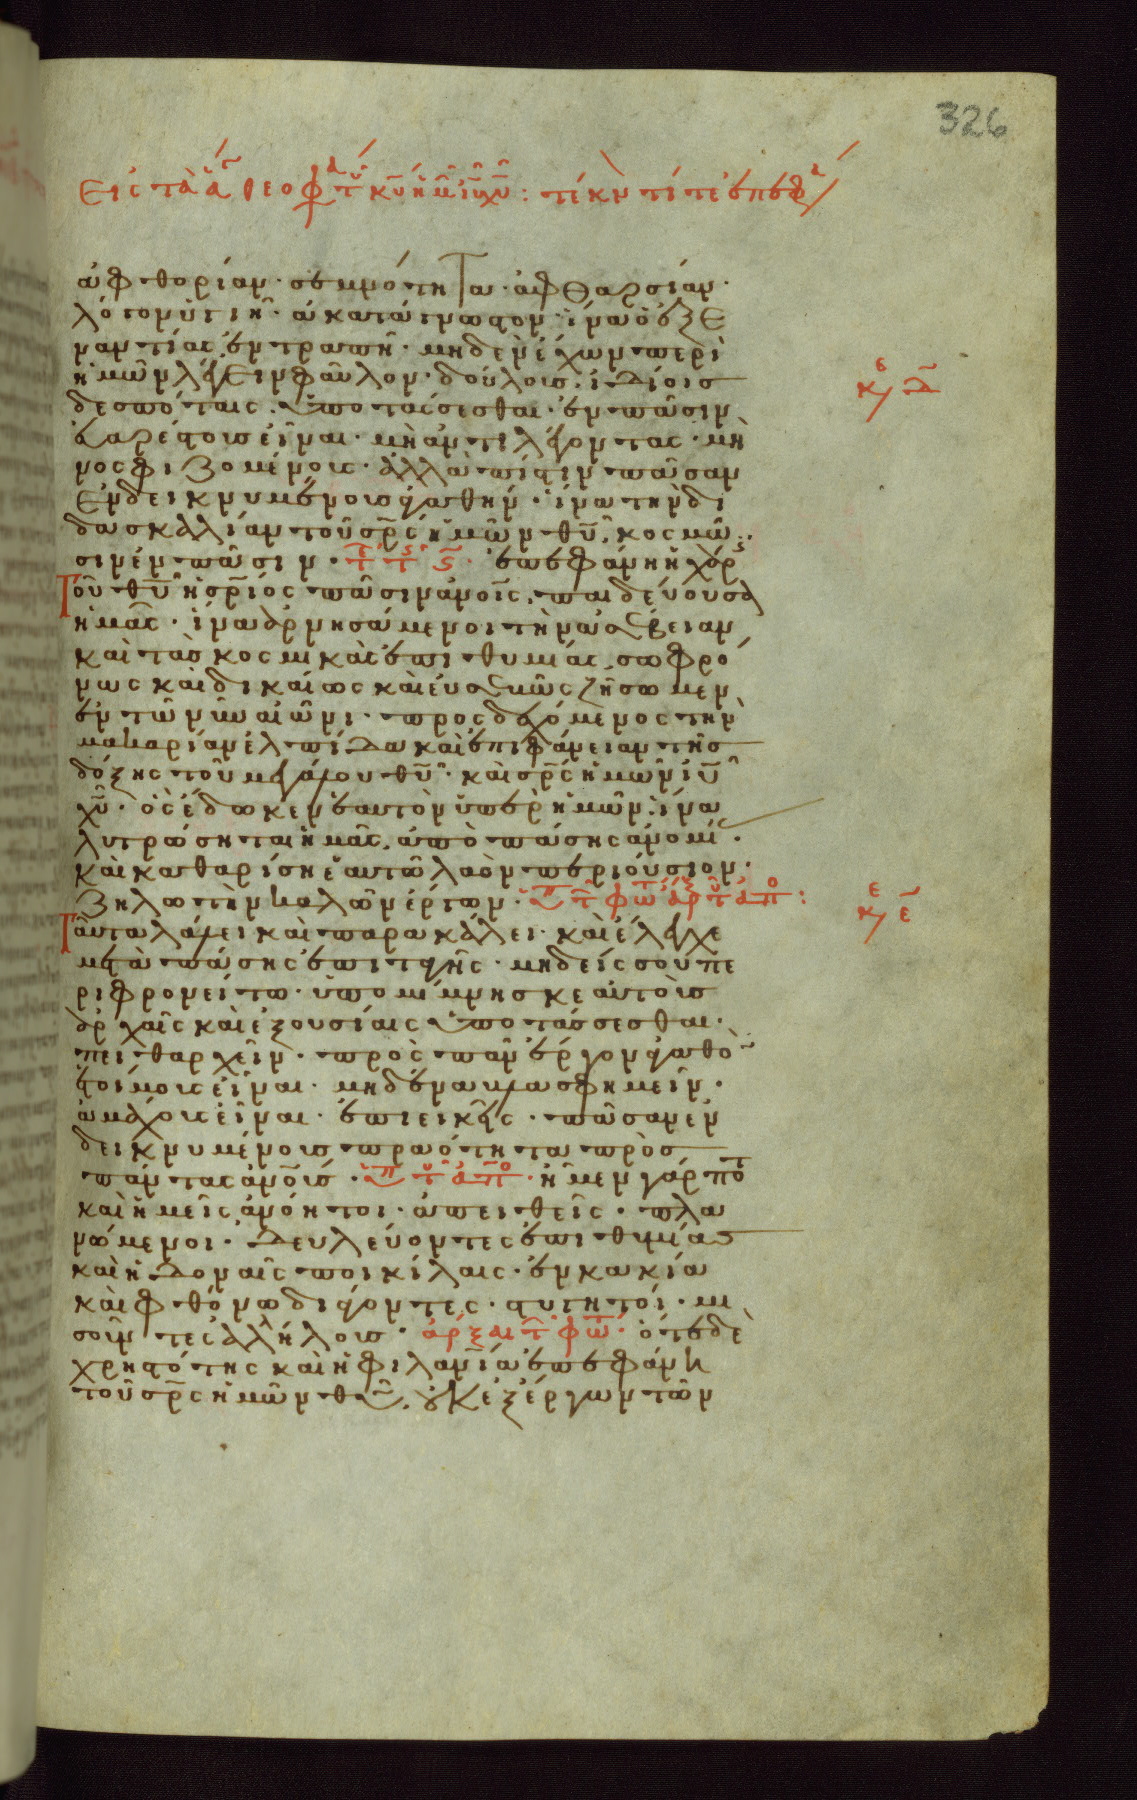 326
Εἰς τὰ ἅγ θεοφ τ κυ ἡμ ιυ χυ: τέκν τίτε ἐπεφ
ἀφθορίαν· σεμνότητα· ἀφθαρσίαν·
λόγον ὑγιῆ· ἀκατάγνωστον· ἵνα ὁ ἐξ ἐ
ναντίας ἐντραπῆ· μηδὲν ἔχων περὶ
ἡμῶν λέγειν φαῦλον· δούλοις ἰδίοις
δεσπόταις ὑποτάσσεσθαι· ἐν πᾶσιν
εὐαρέστοις εἶναι· μὴ ἀντιλέγοντας· μὴ
νοσφιζομένοις· ἀλλὰ πίστιν πᾶσαν
ἐνδεικνυμένοις ἀγαθήν· ἵνα τὴν δι
δασκαλίαν τοῦ σρς ἡμῶν θυ, κοσμῶ
σιν ἐν πᾶσιν· ἐπεφάνη ἡ χάρς
τοῦ θυ ἡ σριος πᾶσιν ἀνοις· παιδεύουσα
ἡμᾶς· ἵνα ἀρνησάμενοι τὴν ἀσέβειαν
καὶ τὰς κοσμικὰς ἐπιθυμίας, σωφρό
νως καὶ δικαίως καὶ εὐσεβῶς ζήσωμεν
ἐν τῶ νῦν αἰῶνι· προσδεχόμενος τὴν
μακαρίαν ἐλπίδα καὶ ἐπιφάνειαν τῆς
δόξης τοῦ μεγάλου θυ· καὶ σρς ἡμῶν ιυ
χυ· ὃς ἔδωκεν ἑαυτὸν ὑπὲρ ἡμῶν· ἵνα
λυτρώσηται ἡμᾶς, ἀπὸ πάσης ἀνομί·
καὶ καθαρίση ἑαυτῶ λαὸν περιούσιον·
ζηλωτὴν καλῶν ἔργων·
ταῦτα λάλει καὶ παρακάλει· καὶ ἔλεγχε
μετὰ πάσης ἐπιταγῆς· μηδείς σου πε
ριφρονείτω· ὑπομίμνησκε αὐτοὺς
ἀρχαῖς καὶ ἐξουσίαις ὑποτάσσεσθαι·
πειθαρχεῖν· πρὸς πᾶν ἔργον ἀγαθὸ
ἑτοίμοις εἶναι· μηδένα βλασφημεῖν·
ἀμάχοις εἶναι· ἐπιεικεῖς· πᾶσαν ἐν
δεικνυμένοις πραότητα πρὸς
πάντας ἀνοις· ἦμεν γάρ ποτ
καὶ ἡμεῖς ἀνόητοι· ἀπειθεῖς· πλα
νώμενοι· δουλεύοντες ἐπιθυμίας
καὶ ἡδοναῖς ποικίλαις· ἐν κακία
καὶ φθόνω διάγοντες· στυγητοί· μι
σοῦντες ἀλλήλοις· ἄρξαι τ φω· ὅτε δὲ
χρηστότης καὶ ἡ φιλανία ἐπεφάνη
τοῦ σρς ἡμῶν θυ, οὐκ ἐξ ἔργων τῶν